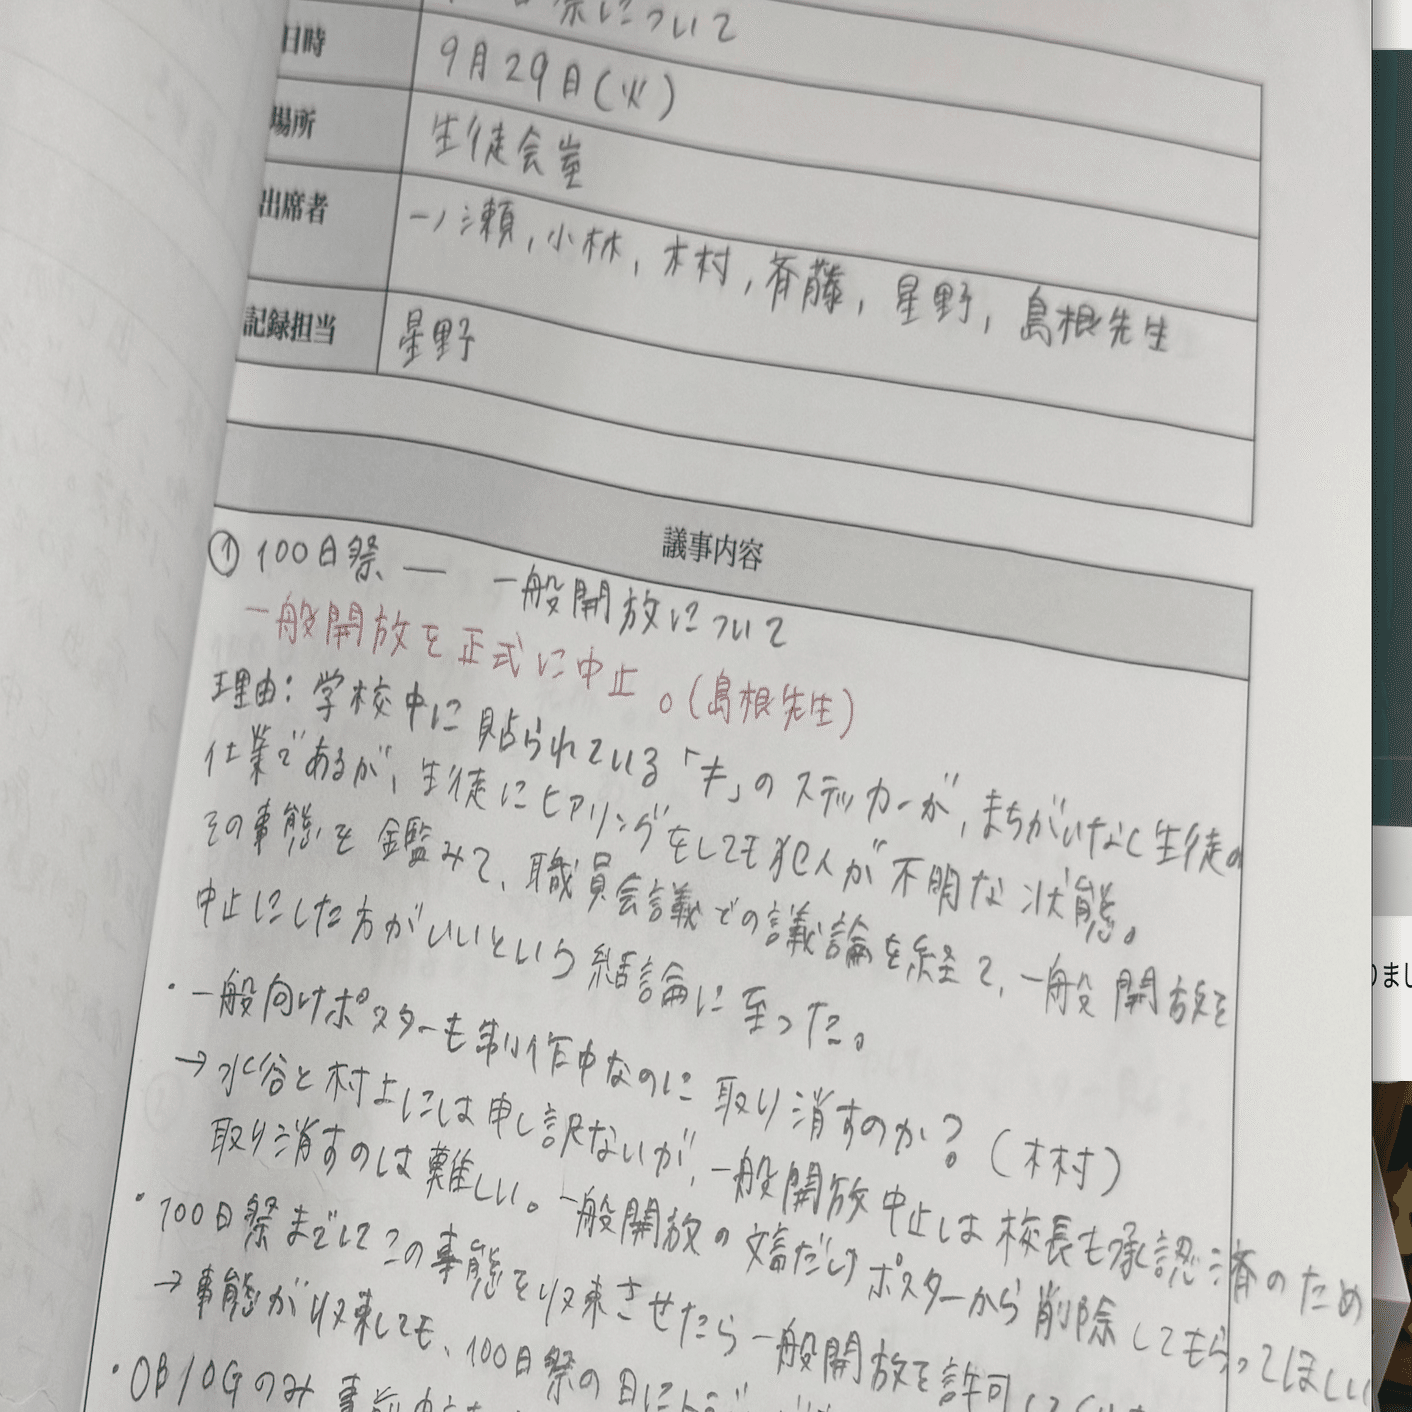 祭について
日時 9月29日(火)
場所 生徒会室
出席者 一ノ瀬,小林,木村,斉藤,星野,島根先生
記録担当 星野
議事内容
① 100日祭 ― 一般開放について
一般開放を正式に中止。(島根先生)
理由:学校中に貼られている「キ」のステッカーが,まちがいなく生徒の
仕業であるが,生徒にヒアリングをしても犯人が不明な状態。
その事態を鑑みて、職員会議での議論を経て,一般開放を
中止にした方がいいという結論に至った。
・一般向けポスターも制作中なのに取り消すのか?(木村)
→水谷と村上には申し訳ないが,一般開放中止は校長も承認済のため
取り消すのは難しい。一般開放の文言だけポスターから削除してもらってほしい
・100日祭までにこの事態を収束させたら一般開放を許可して
→事態が収束しても、100日祭の日に
・OB/OGのみ事前申
りまし